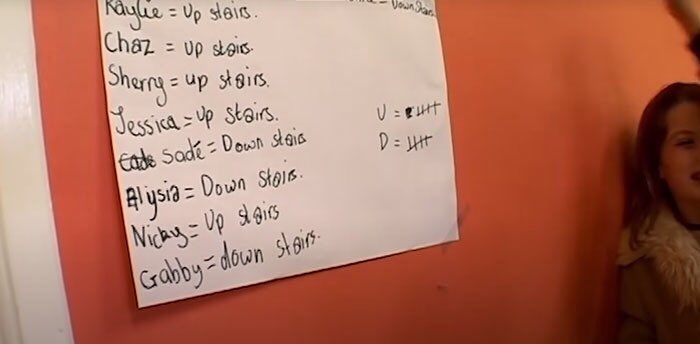 Kaylie = Up stairs.
Down Stairs.
Chaz = up stairs.
Sherry = up stairs.
Jessica = Up stairs.
Sadé = Down stairs
Alysia = Down stairs.
Nicky = Up stairs
Gabby = down stairs.
U =
D =